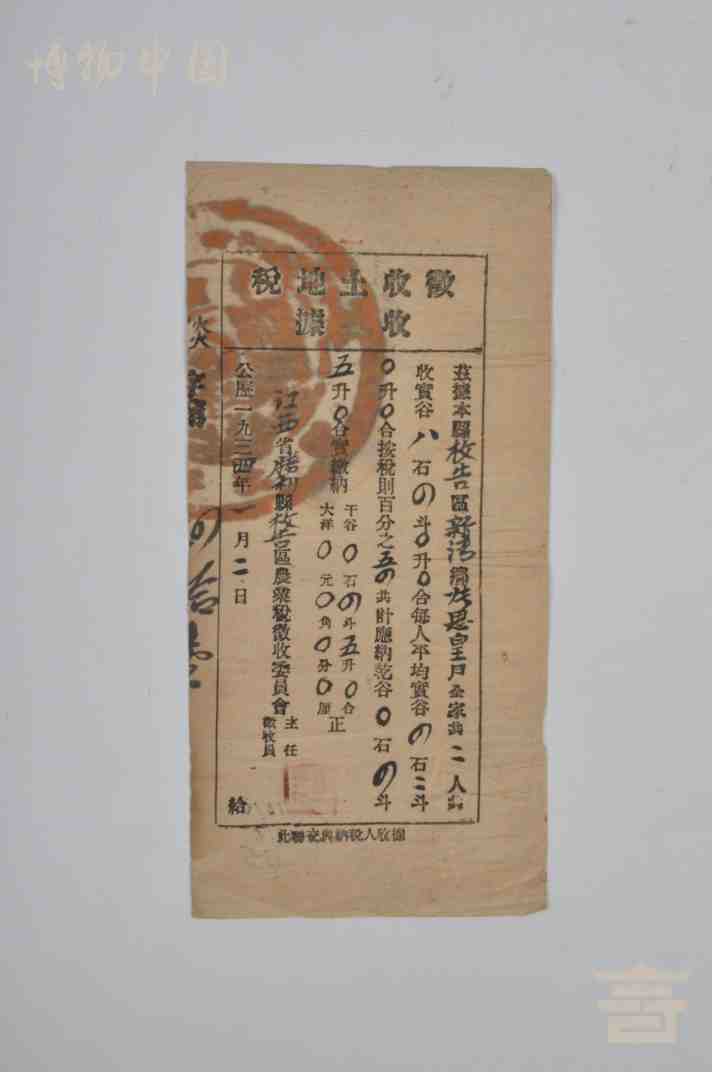 博物中国
徵收土地稅
收據
茲據本縣枚告區新清鄉 恩皇戶全家共二人共
收實谷八石0斗0升0合每人平均實谷 石二斗
0升0合按稅則百分之五 共計應納乾谷0石 斗
五升0合實繳納
干谷0石 斗五升0合
大洋0元0角0分0厘
正
江西省勝利縣枚告區農業稅徵收委員會
主任
徵收員
給
公歷一九三四年一月二日
此聯交與納稅人收據